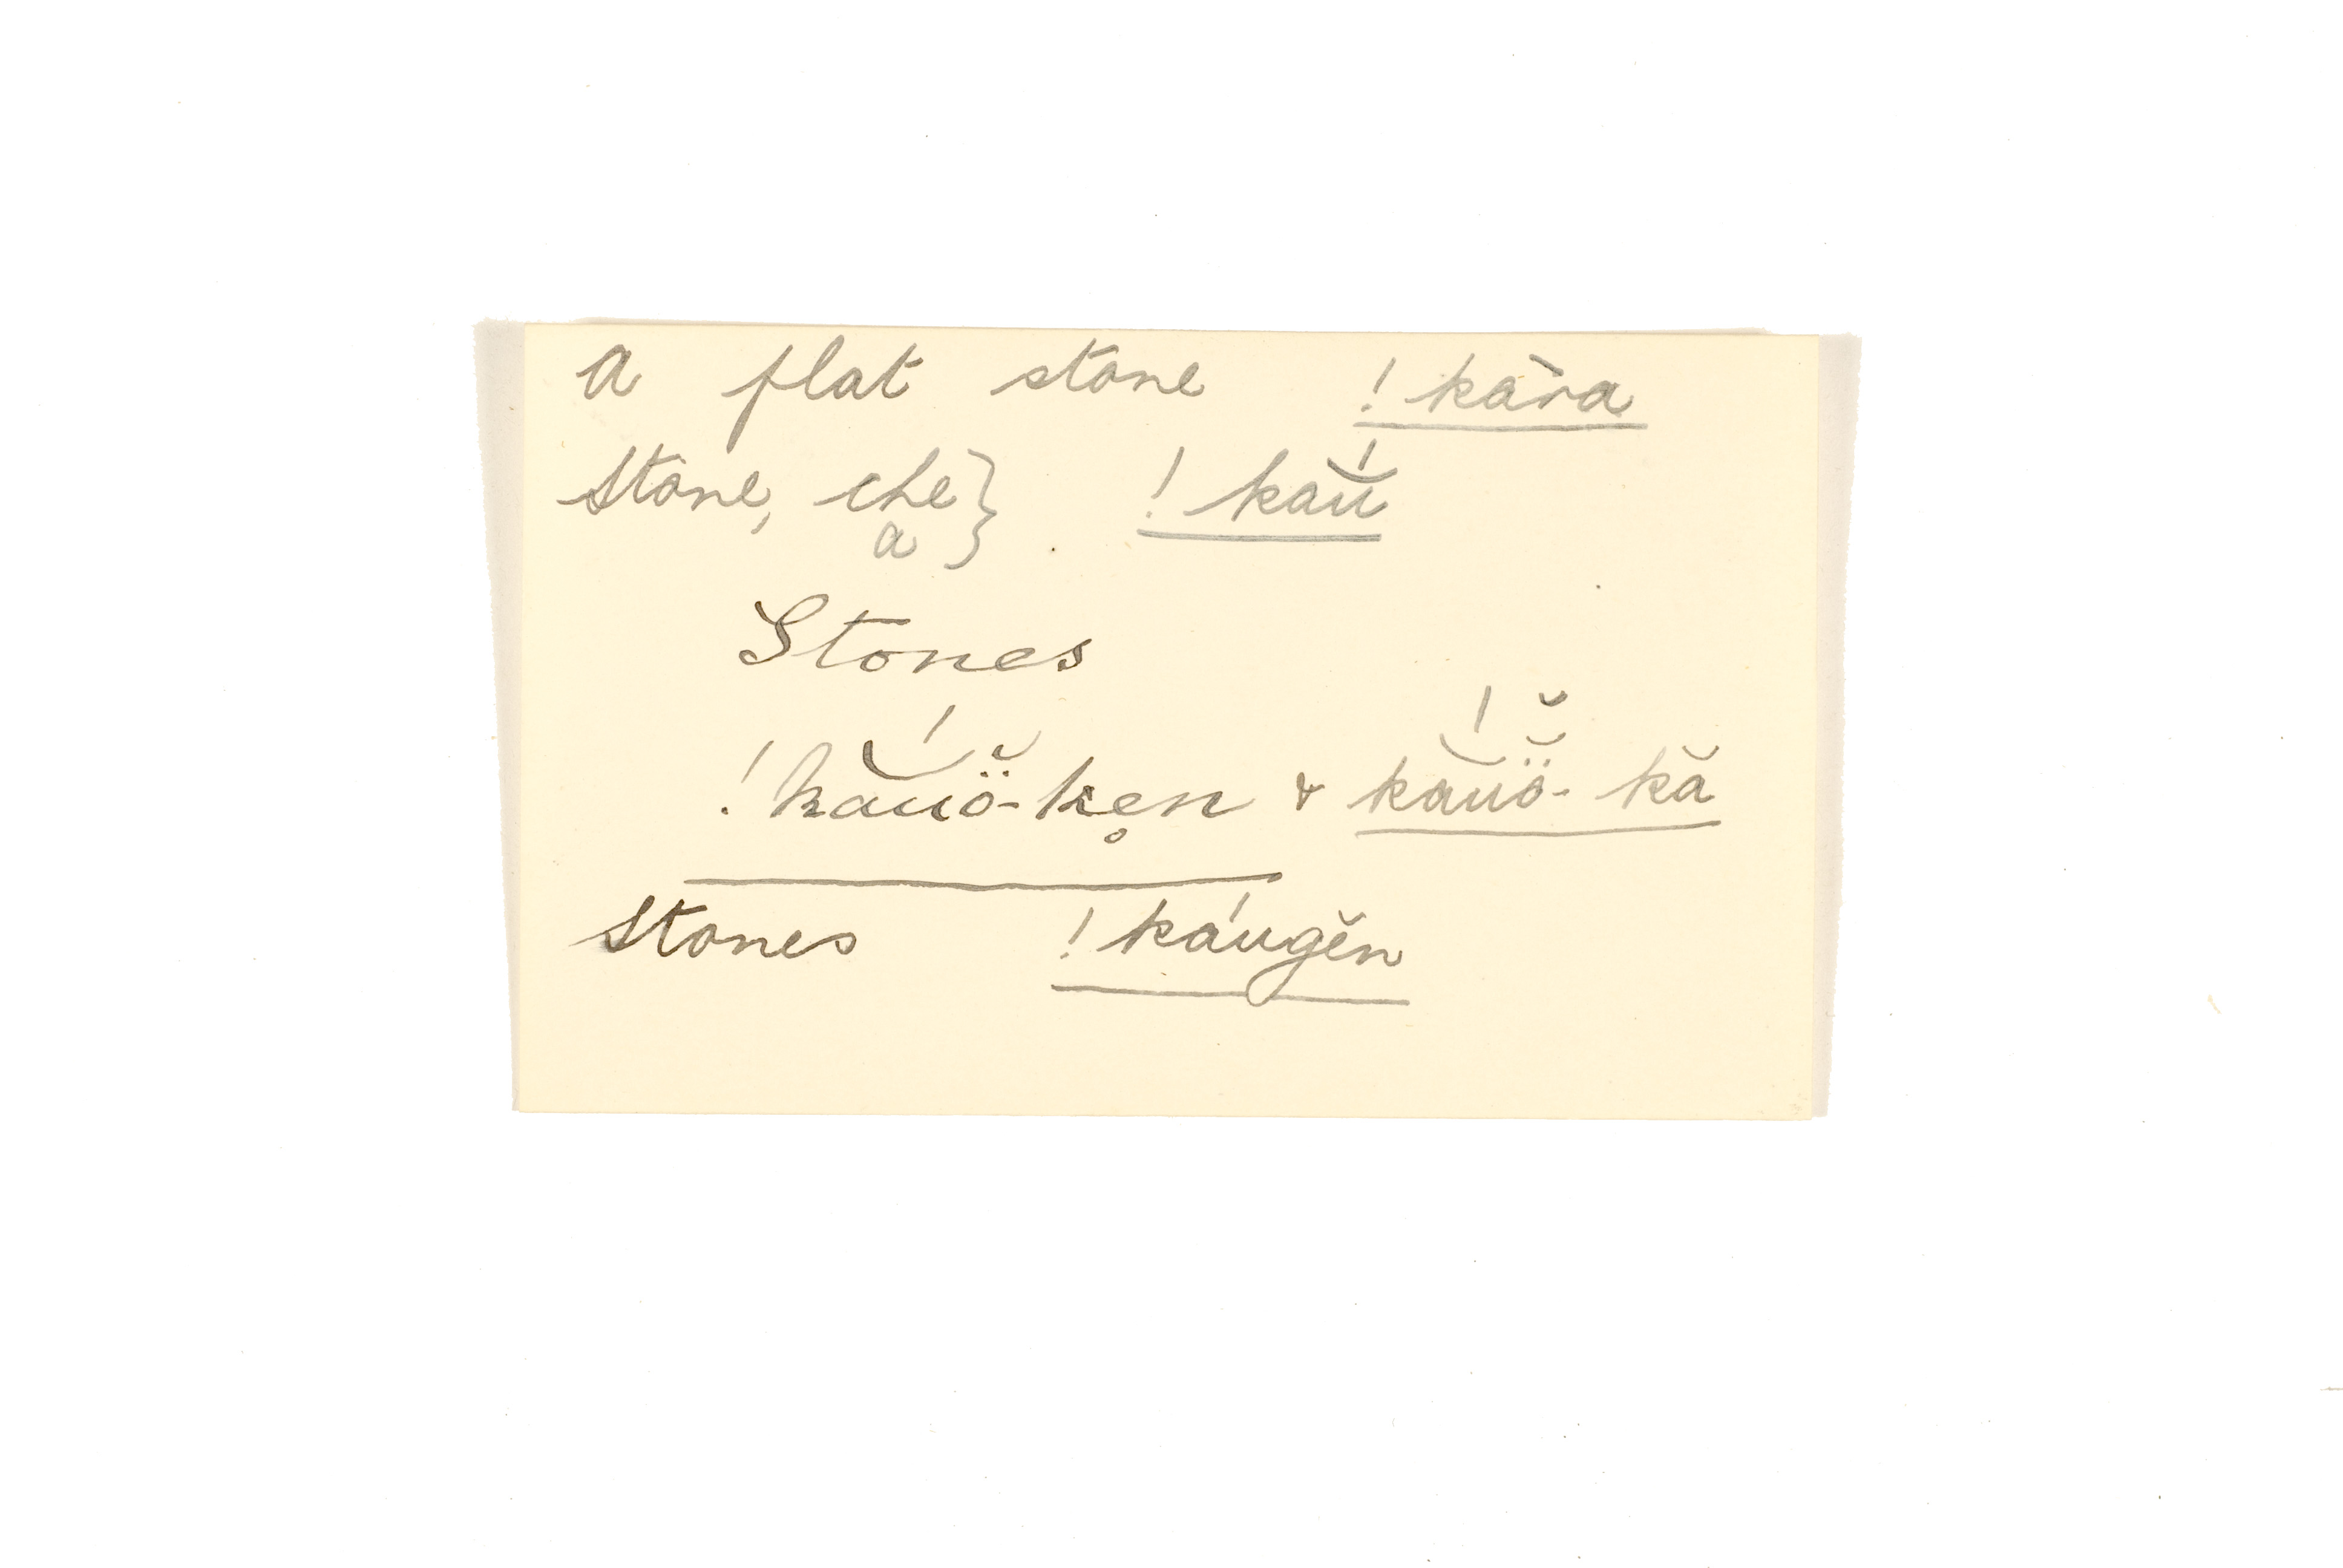 A flat stone ! kàra
Stone, the } ! kaŭ́
a
Stones
! kăŭ́ö̆-ke̥n & kăŭ́ö̆-kă
Stones ! káugĕn